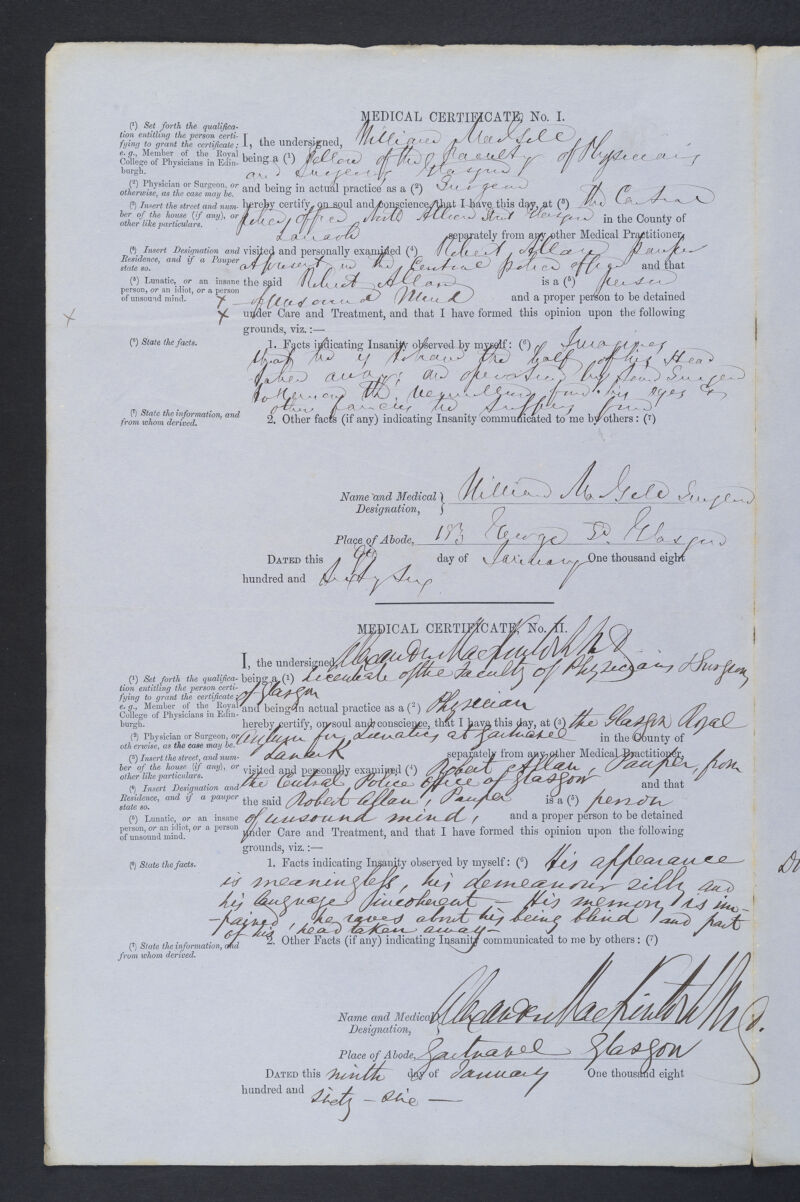 MEDICAL CERTIFICATE, No. I.
(¹) Set forth the qualifica-
tion entitling the person certi-
fying to grant the certificate;
e. g., Member of the Royal
College of Physicians in Edin-
burgh.
I, the undersigned, William
being a (¹) Fellow of the Faculty of Physicians
and Surgeons Glasgow
(²) Physician or Surgeon, or
otherwise, as the case may be.
and being in actual practice as a (²) Surgeon
(³) Insert the street and num-
ber of the house (if any), or
other like particulars.
hereby certify, on soul and conscience, that I have this day, at (³) the Central
Police office South Albion Street Glasgow in the County of
Lanark separately from any other Medical Practitioner,
(⁴) Insert Designation and
Residence, and if a Pauper
state so.
visited and personally examined (⁴) Robert Allan pauper
at present in the Central police office and that
(⁵) Lunatic, or an insane
person, or an idiot, or a person
of unsound mind.
the said Robert Allan is a (⁵) person
x of unsound Mind and a proper person to be detained
x x under Care and Treatment, and that I have formed this opinion upon the following
grounds, viz. :—
(⁶) State the facts.
1. Facts indicating Insanity observed by myself: (⁶) Imagines
that he is to have the half of his Head
taken away, and operation by Surgeon
to remove the from his eyes &
other fancies he
(⁷) State the information, and
from whom derived.
2. Other facts (if any) indicating Insanity communicated to me by others: (⁷)
Name and Medical
Designation,
William Surgeon
Place of Abode, 183 George St. Glasgow
DATED this day of January One thousand eight
hundred and Sixty Six
MEDICAL CERTIFICATE, No. II.
I, the undersigned, Alexander MacKintosh M D
(¹) Set forth the qualifica-
tion entitling the person certi-
fying to grant the certificate;
e. g., Member of the Royal
College of Physicians in Edin-
burgh.
being a (¹) Licentiate of the Faculty of Physicians & Surgeons
of Glasgow
and being in actual practice as a (²) Physician
(²) Physician or Surgeon, or
otherwise, as the case may be.
hereby certify, on soul and conscience, that I have this day, at (³) the Glasgow Royal
Asylum for Lunatics at Gartnavel in the County of
(³) Insert the street, and num-
ber of the house (if any), or
other like particulars.
Lanark separately from any other Medical Practitioner,
visited and personally examined (⁴) Robert Allan, Pauper, from
(⁴) Insert Designation and
Residence, and if a pauper
state so.
the Central Police office of Glasgow and that
the said Robert Allan, Pauper is a (⁵) person
(⁵) Lunatic, or an insane
person, or an idiot, or a person
of unsound mind.
of unsound mind, and a proper person to be detained
under Care and Treatment, and that I have formed this opinion upon the following
grounds, viz. :—
(⁶) State the facts.
1. Facts indicating Insanity observed by myself: (⁶) His appearance
is meaningless, his demeanour silly and
his language incoherent – His memory is im-
-paired, he raves about his being blind and part
of his head taken away –
(⁷) State the information, and
from whom derived.
2. Other Facts (if any) indicating Insanity communicated to me by others: (⁷)
Name and Medical
Designation,
Alexander MacKintosh M D.
Place of Abode, Gartnavel Glasgow
DATED this ninth day of January One thousand eight
hundred and sixty – six –